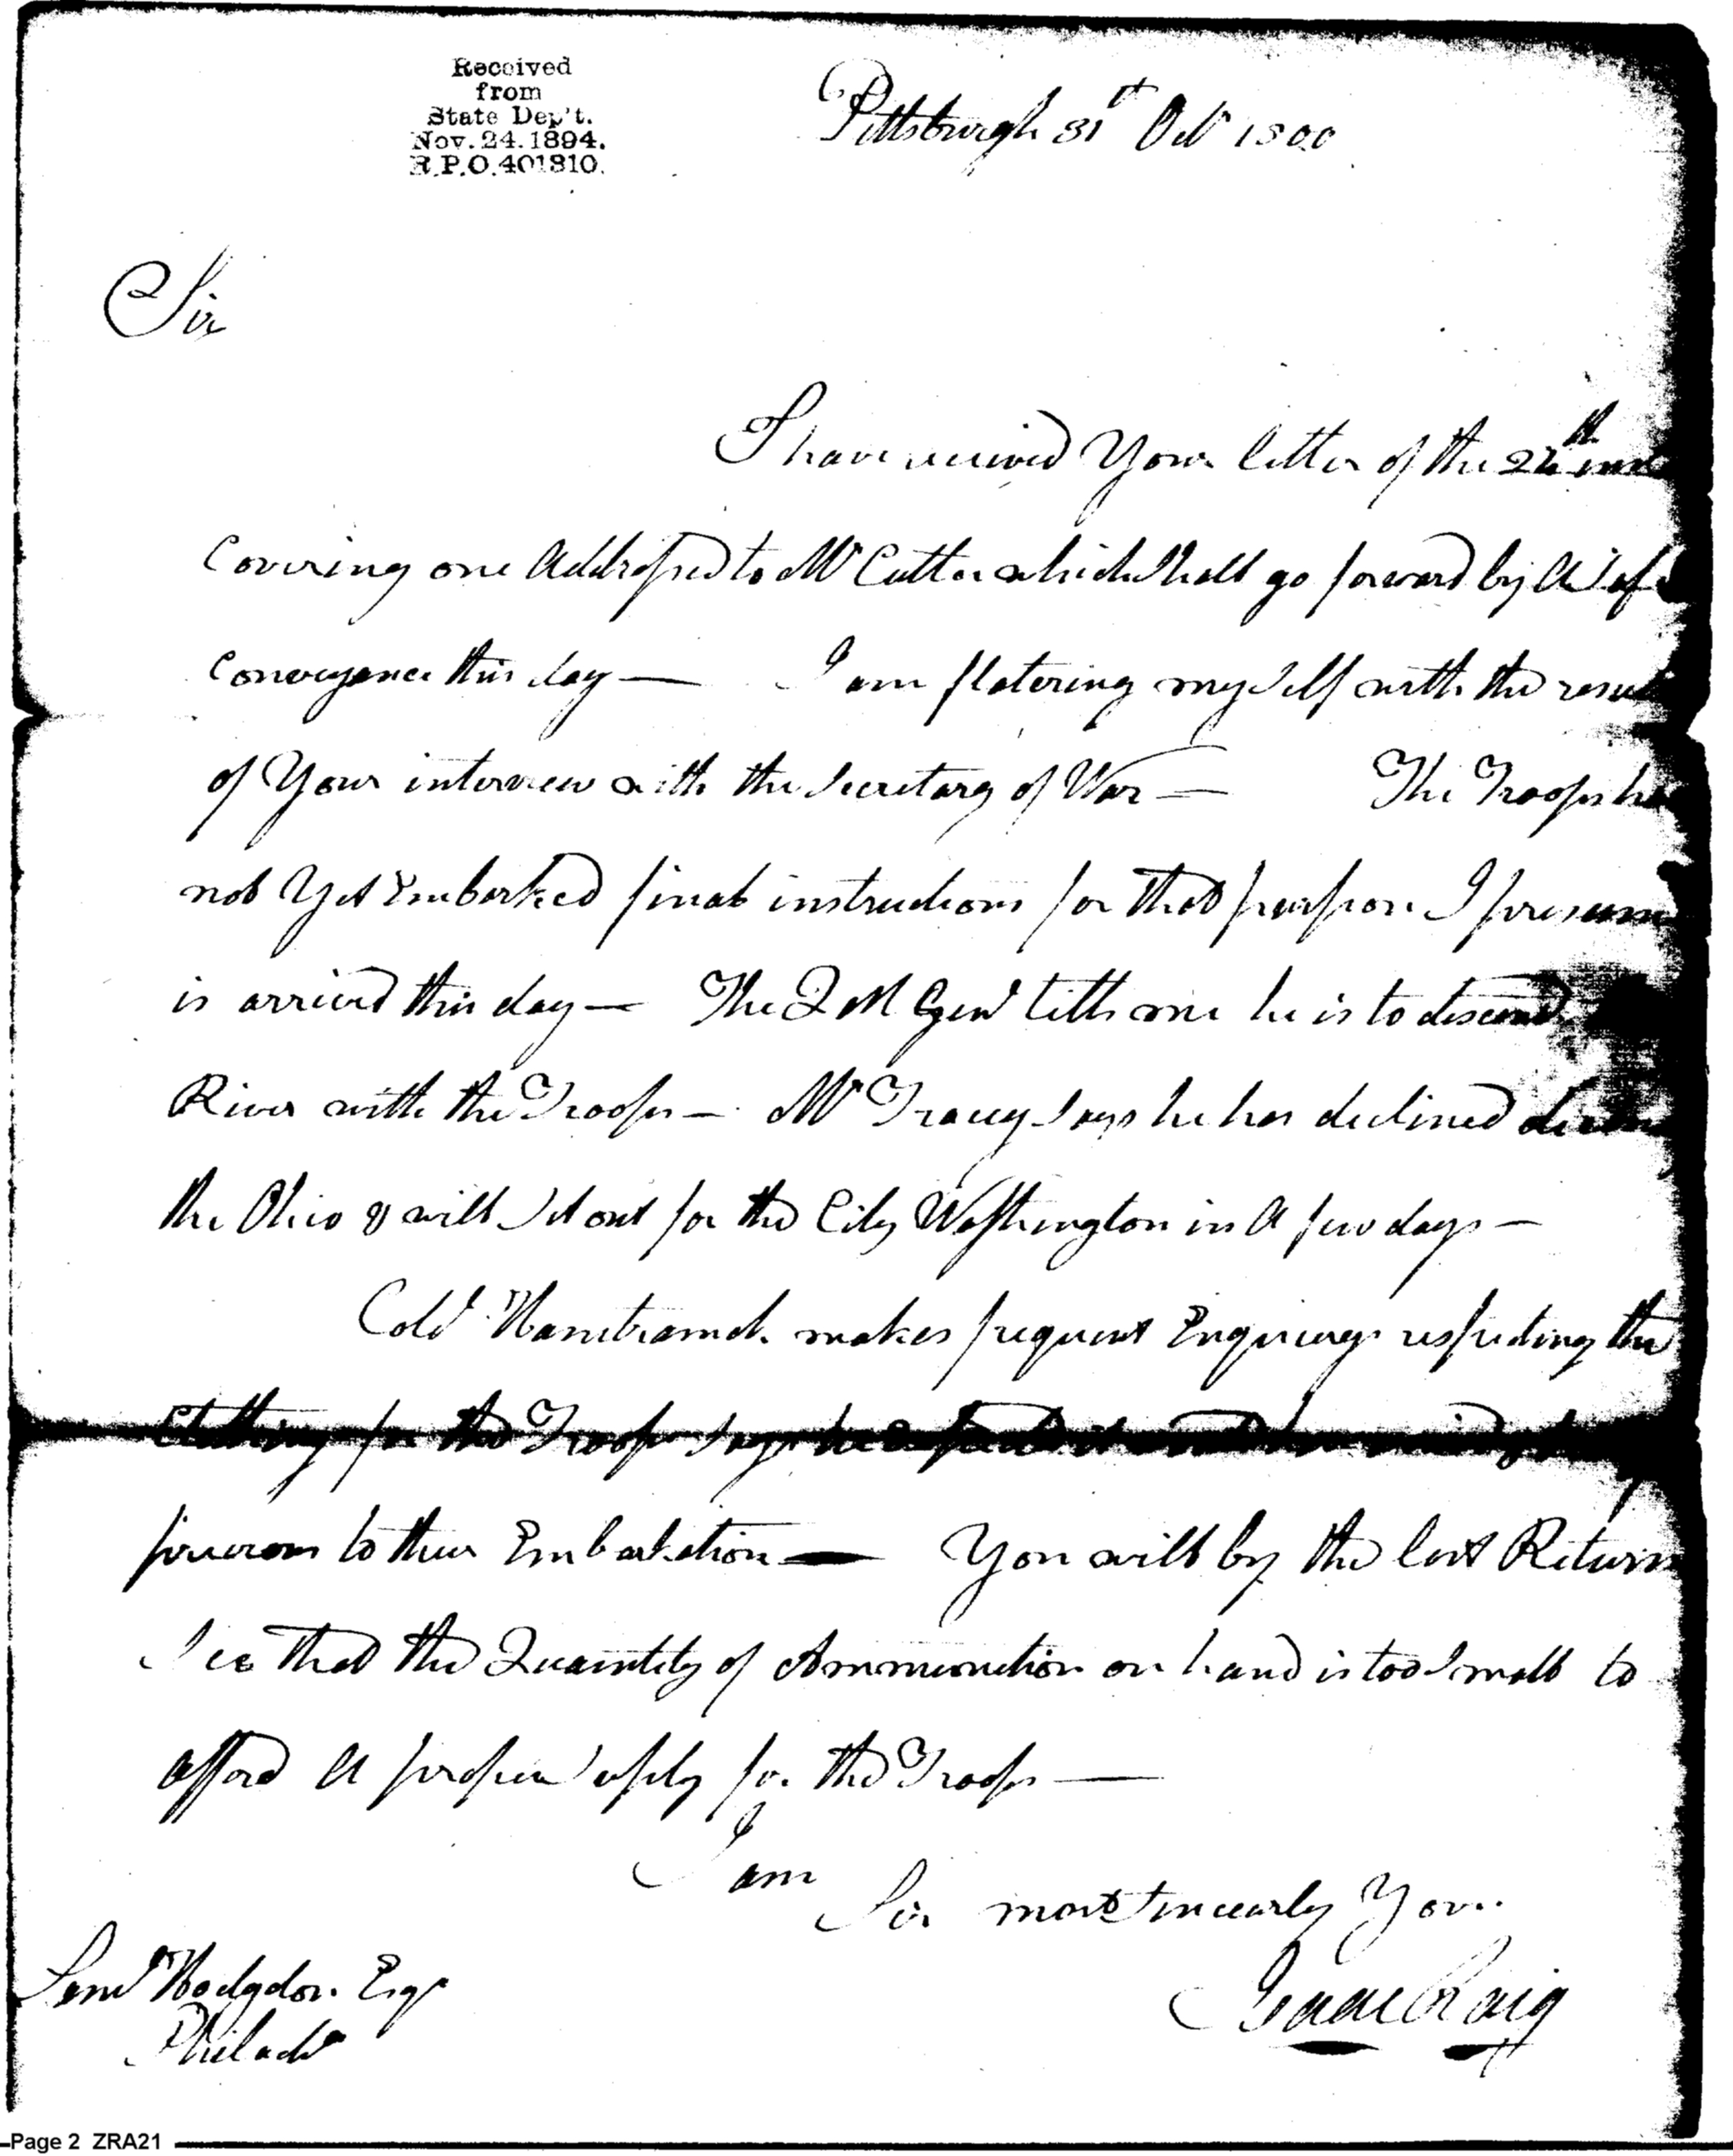 Received
from
State Dep't.
Nov. 24. 1894.
R.P.O. 401810.
Pittsburgh 31st Octr 1800
Sir
I have received Your letter of the 24th inst
Covering one Addressed to Mr Cutter which shall go forward by A safe
Conveyance this day — I am flatering myself with the
of Your interview with the Secretary of War — The Troops
not Yet Embarked final instructions for that purpose I presume
is arrived this day — The Q M Genl tells me he is to descend
River with the Troops — Mr Tracey says he has declined
the Ohio & will set out for the City Washington in A few days —
Cold Hamtramck makes frequent Enquireys respecting the
Clothing for the Troops says he
previous to their Embarkation — You will by the last Return
see that the Quaintity of Ammunition on hand is too small to
afford A proper suply for the Troops —
I am
Sir most sincearly Yours
Isaac Craig
Saml Hodgdon Esqr
Philada
Page 2 ZRA21